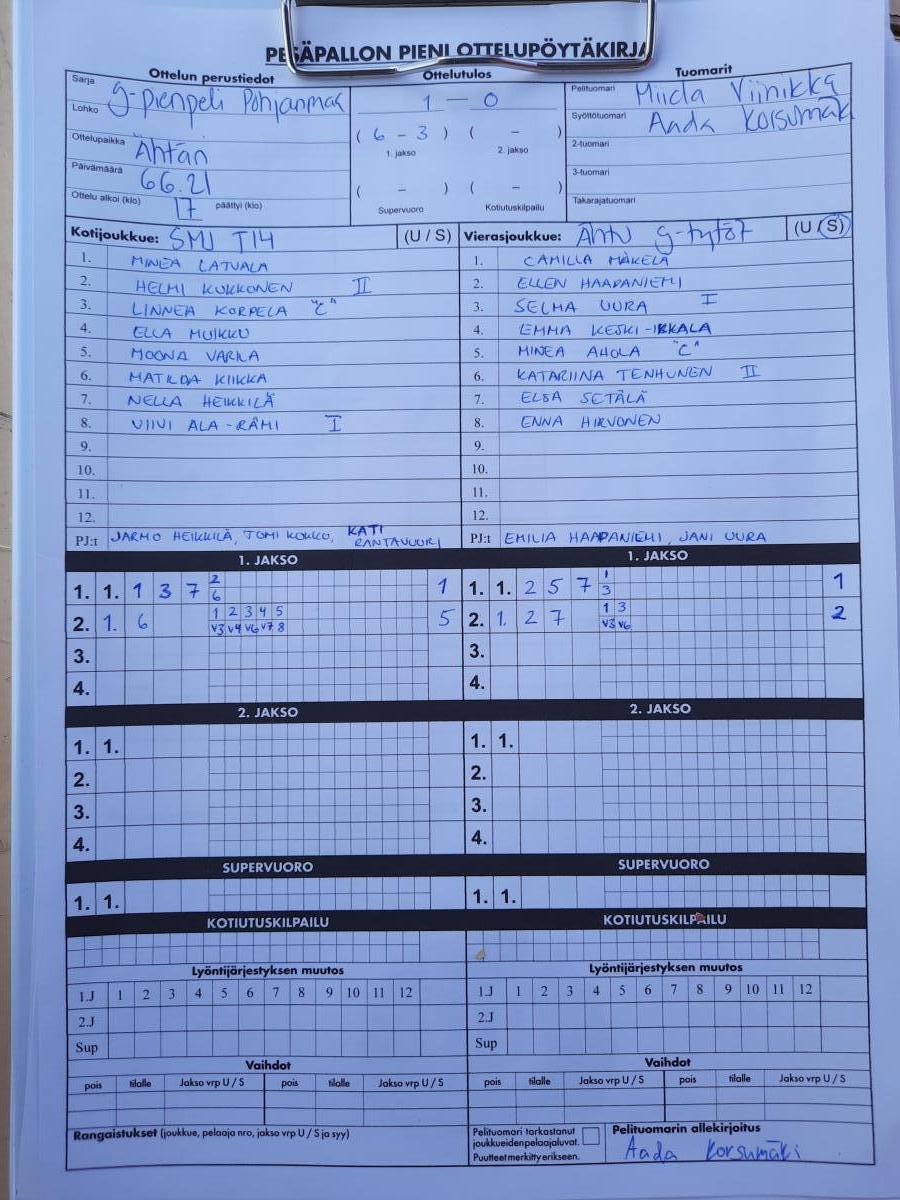 PESÄPALLON PIENI OTTELUPÖYTÄKIRJA
Ottelun perustiedot Ottelutulos Tuomarit
Sarja g-pienpeli Pohjanmaa
Lohko
Ottelupaikka Ähtäri
Päivämäärä 6.6.21
Ottelu alkoi (klo) 17 päättyi (klo)
1 — 0
( 6 - 3 ) ( - )
1. jakso 2. jakso
( - ) ( - )
Supervuoro Kotiutuskilpailu
Pelituomari Viinikka
Syöttötuomari Aada Korsumäk
2-tuomari
3-tuomari
Takarajatuomari
Kotijoukkue: SMJ T14 (U / S)
1. MINEA LATVALA
2. HELMI KUKKONEN II
3. LINNEA KORPELA "C"
4. ELLA MUIKKU
5. MOONA VARILA
6. MATILDA KIIKKA
7. NELLA HEIKKILÄ
8. VIIVI ALA-RÄMI I
9.
10.
11.
12.
PJ:t JARMO HEIKKILÄ, TOMI KOKKO, KATI RANTAVUORI
Vierasjoukkue: ÄhtU g-tytöt (U / S)
1. CAMILLA MÄKELÄ
2. ELLEN HAAPANIEMI
3. SELMA UURA I
4. EMMA KESKI-IKKALA
5. MINEA AHOLA "C"
6. KATARIINA TENHUNEN II
7. ELSA SETÄLÄ
8. ENNA HIRVONEN
9.
10.
11.
12.
PJ:t EMILIA HAAPANIEMI, JANI UURA
1. JAKSO
2
1. 1. 1 3 7 6 1
1 2 3 4 5
2. 1. 6 V3 V4 V6 V7 8 5
3.
4.
1. JAKSO
1
1. 1. 2 5 7 3 1
1 3
2. 1. 2 7 V3 V6 2
3.
4.
2. JAKSO
1. 1.
2.
3.
4.
2. JAKSO
1. 1.
2.
3.
4.
SUPERVUORO
1. 1.
SUPERVUORO
1. 1.
KOTIUTUSKILPAILU
KOTIUTUSKILPAILU
Lyöntijärjestyksen muutos
1.J 1 2 3 4 5 6 7 8 9 10 11 12
2.J
Sup
Lyöntijärjestyksen muutos
1.J 1 2 3 4 5 6 7 8 9 10 11 12
2.J
Sup
Vaihdot
pois tilalle Jakso vrp U / S pois tilalle Jakso vrp U / S
Vaihdot
pois tilalle Jakso vrp U / S pois tilalle Jakso vrp U / S
Rangaistukset (joukkue, pelaaja nro, jakso vrp U / S ja syy)
Pelituomari tarkastanut
joukkueiden pelaajaluvat.
Puutteet merkitty erikseen.
Pelituomarin allekirjoitus
Aada Korsumäki